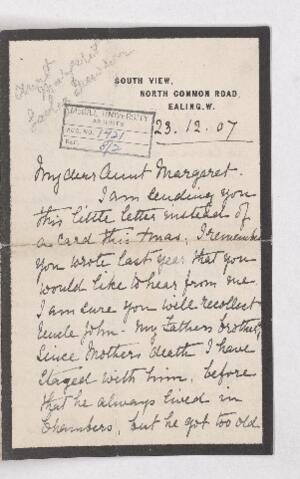 Aunt
Margaret
SOUTH VIEW,
NORTH COMMON ROAD,
EALING. W.
McGILL UNIVERSITY
ARCHIVES
ACC. NO. 1431
REF.
23.12.07
My dear Aunt Margaret.
I am sending you
this little letter instead of
a card this Xmas, I remember
you wrote last year that you
would like to hear from me
I am sure you will recollect
Uncle John - My Fathers brother,
Since Mothers death I have
stayed with him, before
that he always lived in
Chambers, but he got too old